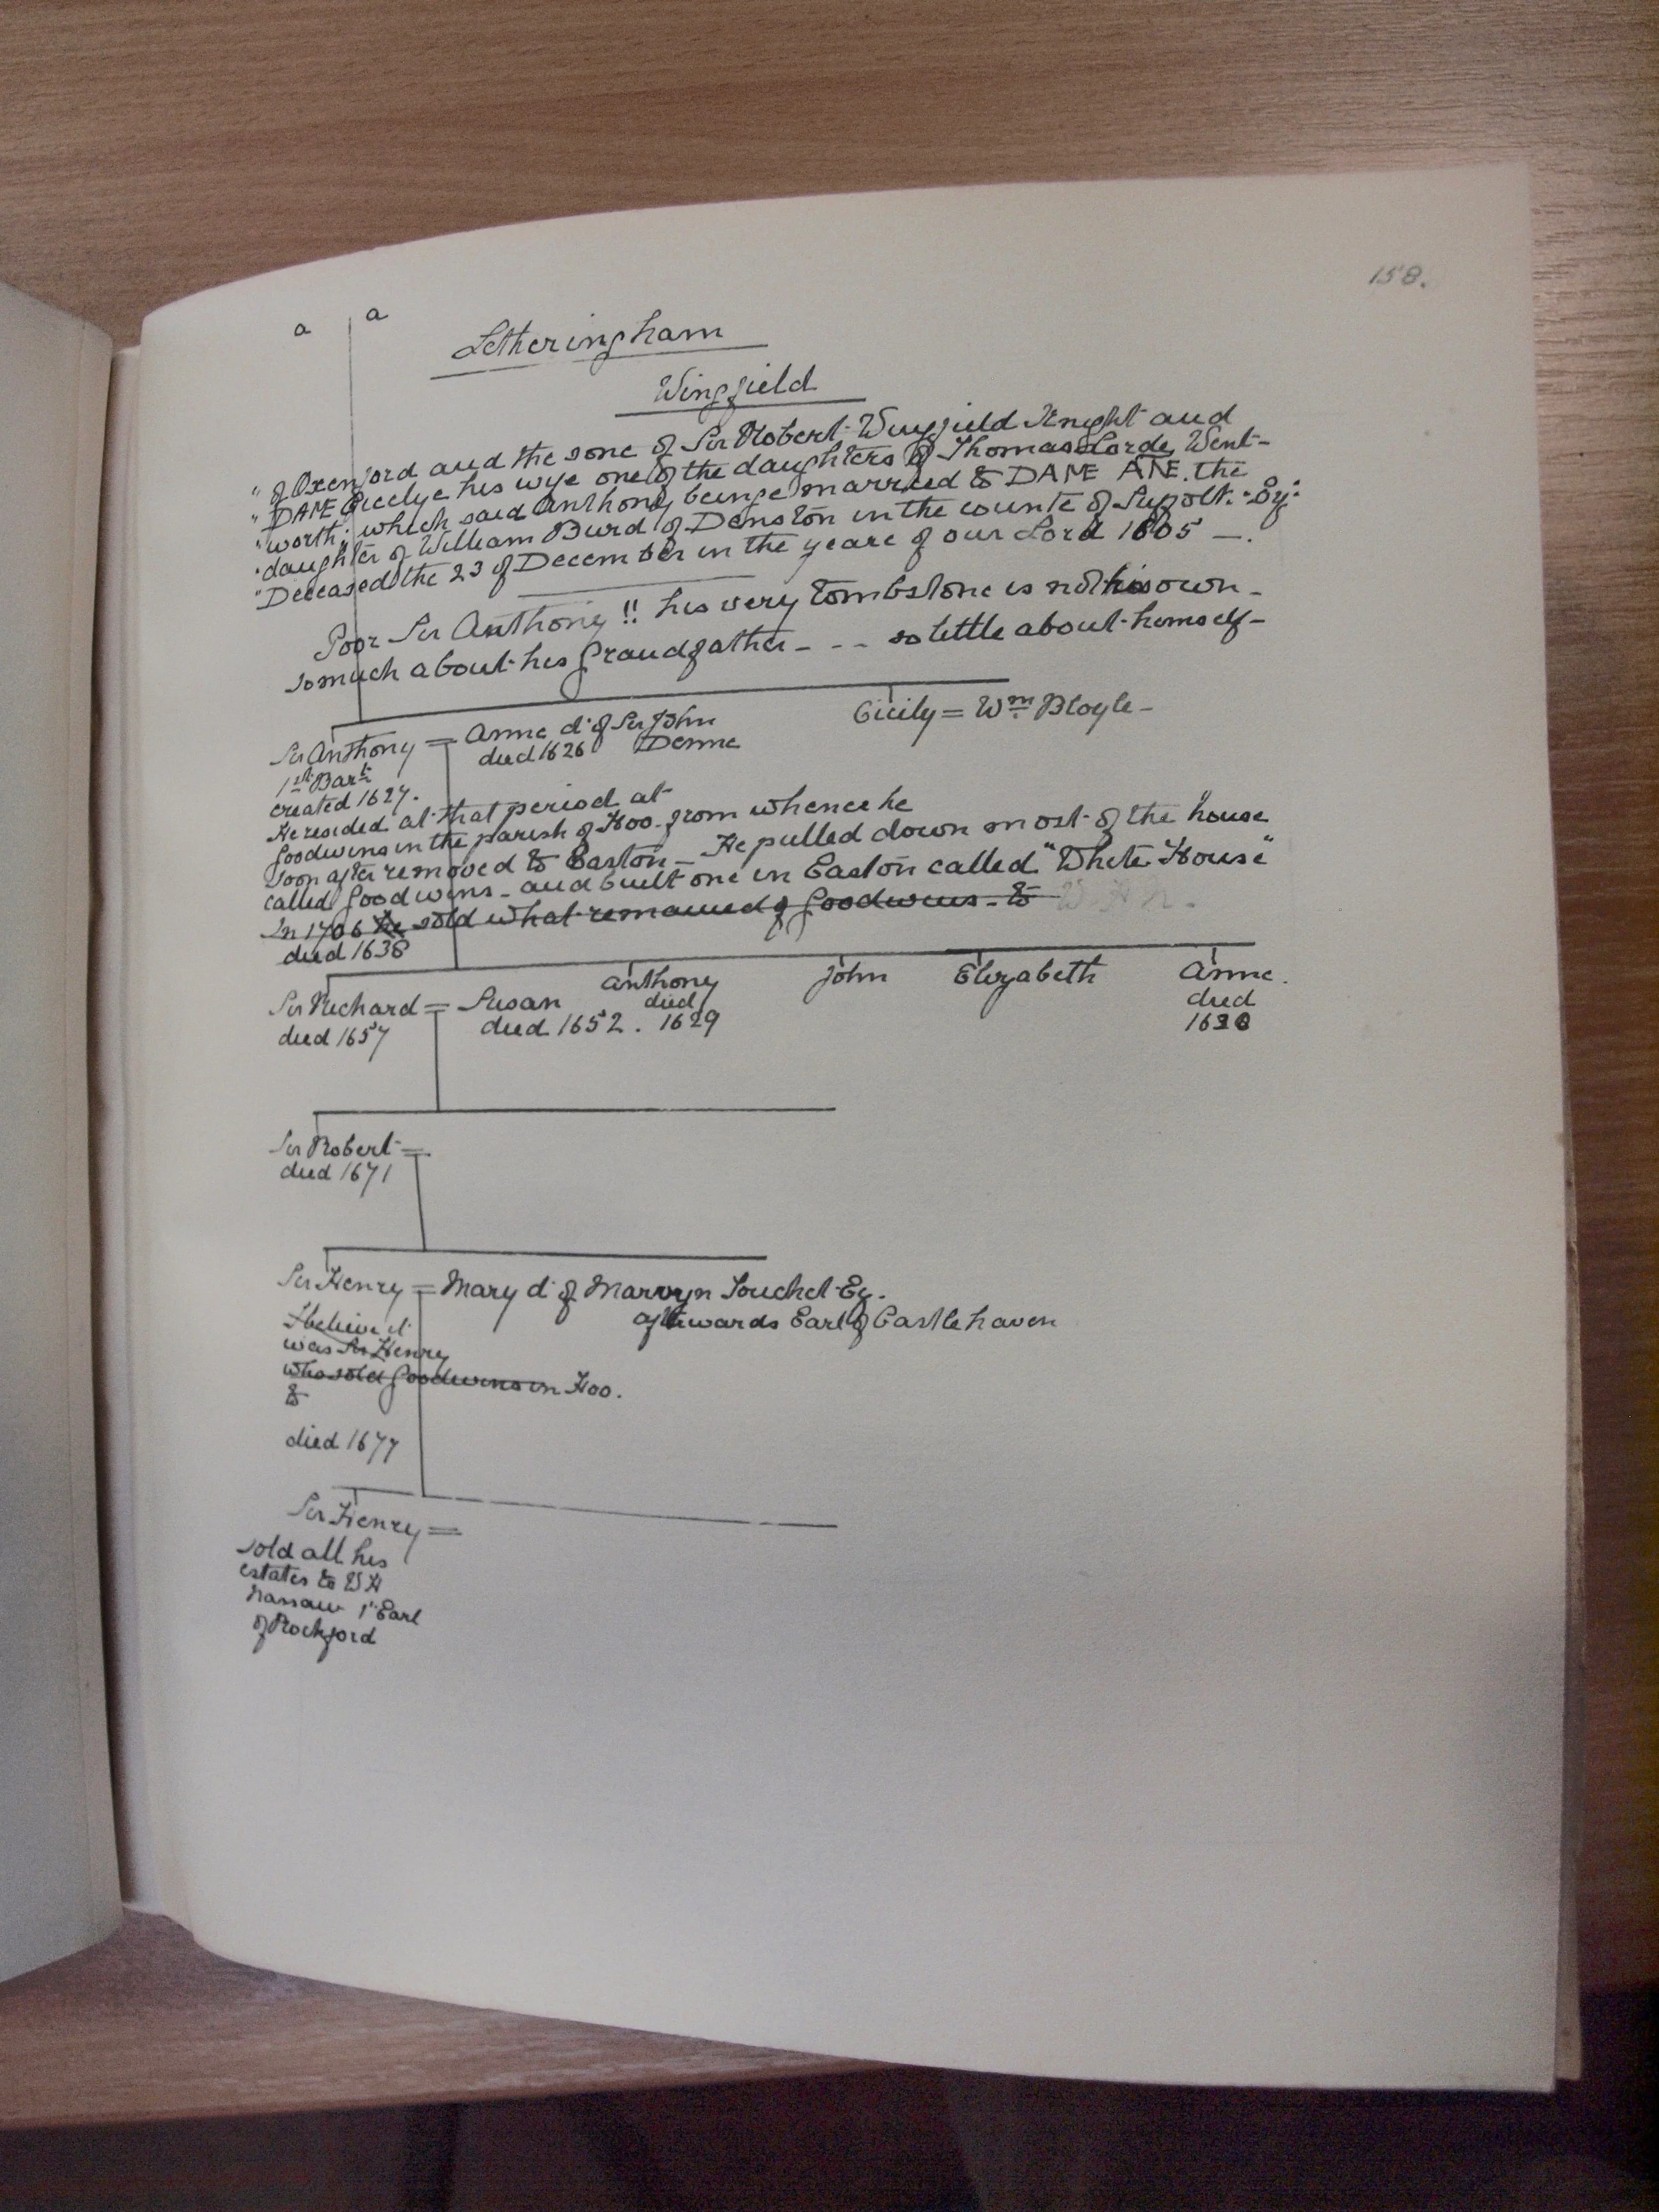 158.
a a
Letheringham
Wingfield
" of Oxenford and the sone of Sir Robert Wingfield Knight and
" DAME Cicelye his wyfe one of the daughters of Thomas Lorde Went-
" worth; which said Anthony beinge married to DAME ANE. the
" daughter of William Burd of Denston in the counte of Suffolk. Esq:
" Deceased the 23 of December in the yeare of our Lord 1605 —.
Poor Sir Anthony!! his very tombstone is not his own -
so much about his Grandfather - - - so little about himself -
Cicily = Wm Bloyle -
Sir Anthony = Anne d. of Sir John
died 1626 Denne
1st Bart
created 1627.
He resided at that period at
Goodwins in the parish of Hoo. from whence he
soon after removed to Easton - He pulled down most of the house
called Goodwins - and built one in Easton called "White House"
In 1706 he sold what remained of Goodwins - to W. H. N.
died 1638
Sir Richard = Susan Anthony John Elizabeth Anne.
died 1657 died 1652. died 1629 died
Sir Robert =
died 1671
Sir Henry = Mary d. of Marvyn Touchet Eq.
afterwards Earl of Castlehaven
I believe it
was Sir Henry
who sold Goodwins in Hoo.
to
died 1677
Sir Henry =
sold all his
estates to W H
Nassau 1st Earl
of Rochford